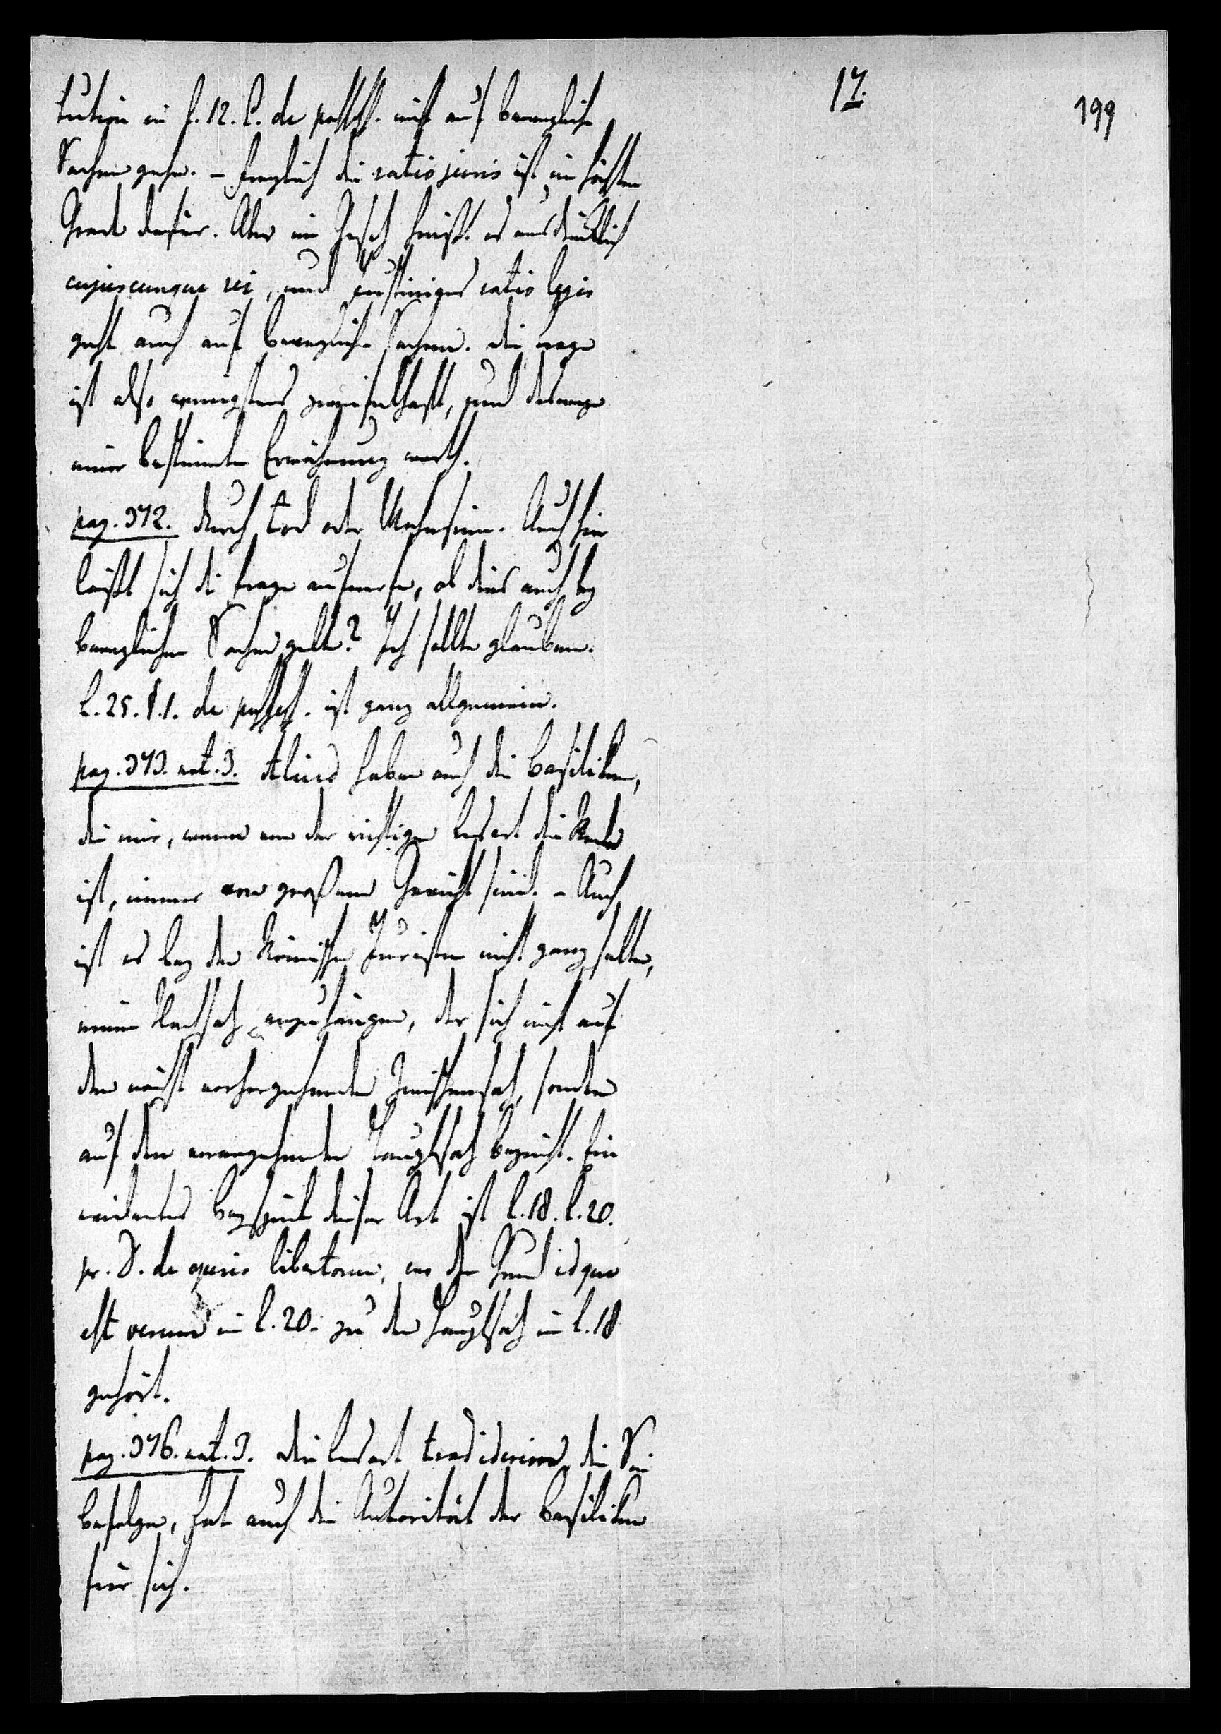 17.
199
tution in l. 12. C. de possess. nicht auf bewegliche
Sachen gehe. – freylich die ratio juris ist im höchsten
Grade dafür. Aber im Gesetz heißt es ausdrücklich
cujuscunque rei, und Justinians ratio legis
geht auch auf bewegliche Sachen. Die Frage
ist also wenigstens zweifelhaft, und deswegen
einer bestimmten Erwähnung werth.
pag. 372. durch Tod oder Wahnsinn. Auch hier
läßt sich die Frage aufwerfen, ob dies auch bey
beweglichen Sachen gelte? Ich sollte glauben.
l. 25. §. 1. de possess. ist ganz allgemein.
pag. 373. not. 3. Alius haben auch die Basiliken,
die mir, wenn von der richtigen Lesart die Rede
ist, immer von großem Gewicht sind. – Auch
ist es bey den Römischen Juristen nicht ganz selten,
einen Nachsatz anzuhängen, der sich nicht auf
den nächst vorhergehenden Zwischensatz, sondern
auf den vorangehenden Hauptsatz bezieht. Ein
evidentes Beyspiel dieser Art ist l. 18. l. 20.
pr. D. de operis libertorum, wo der Grund idque
est verum in l. 20. zu dem Hauptsatz in l. 18
gehört.
pag. 376. not. 3. Die Lesart tradiderim, die Sie
befolgen, hat auch die Autorität der Basiliken
für sich.